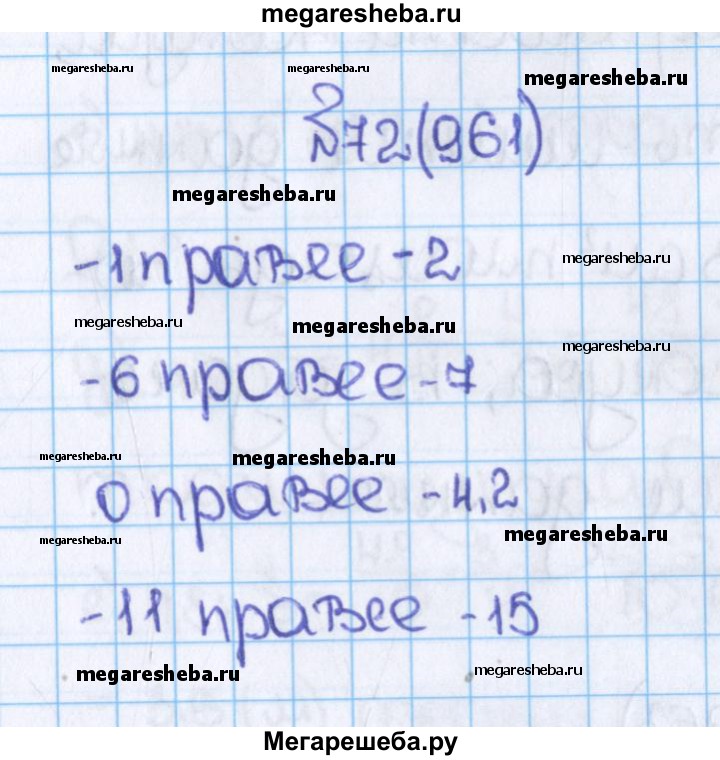 megaresheba.ru
megaresheba.ru megaresheba.ru megaresheba.ru
№72(961)
megaresheba.ru
-1 правее -2
megaresheba.ru
megaresheba.ru megaresheba.ru
megaresheba.ru
-6 правее -7
megaresheba.ru megaresheba.ru
0 правее -4,2
megaresheba.ru
megaresheba.ru
-11 правее -15
megaresheba.ru megaresheba.ru
Мегарешеба.ру